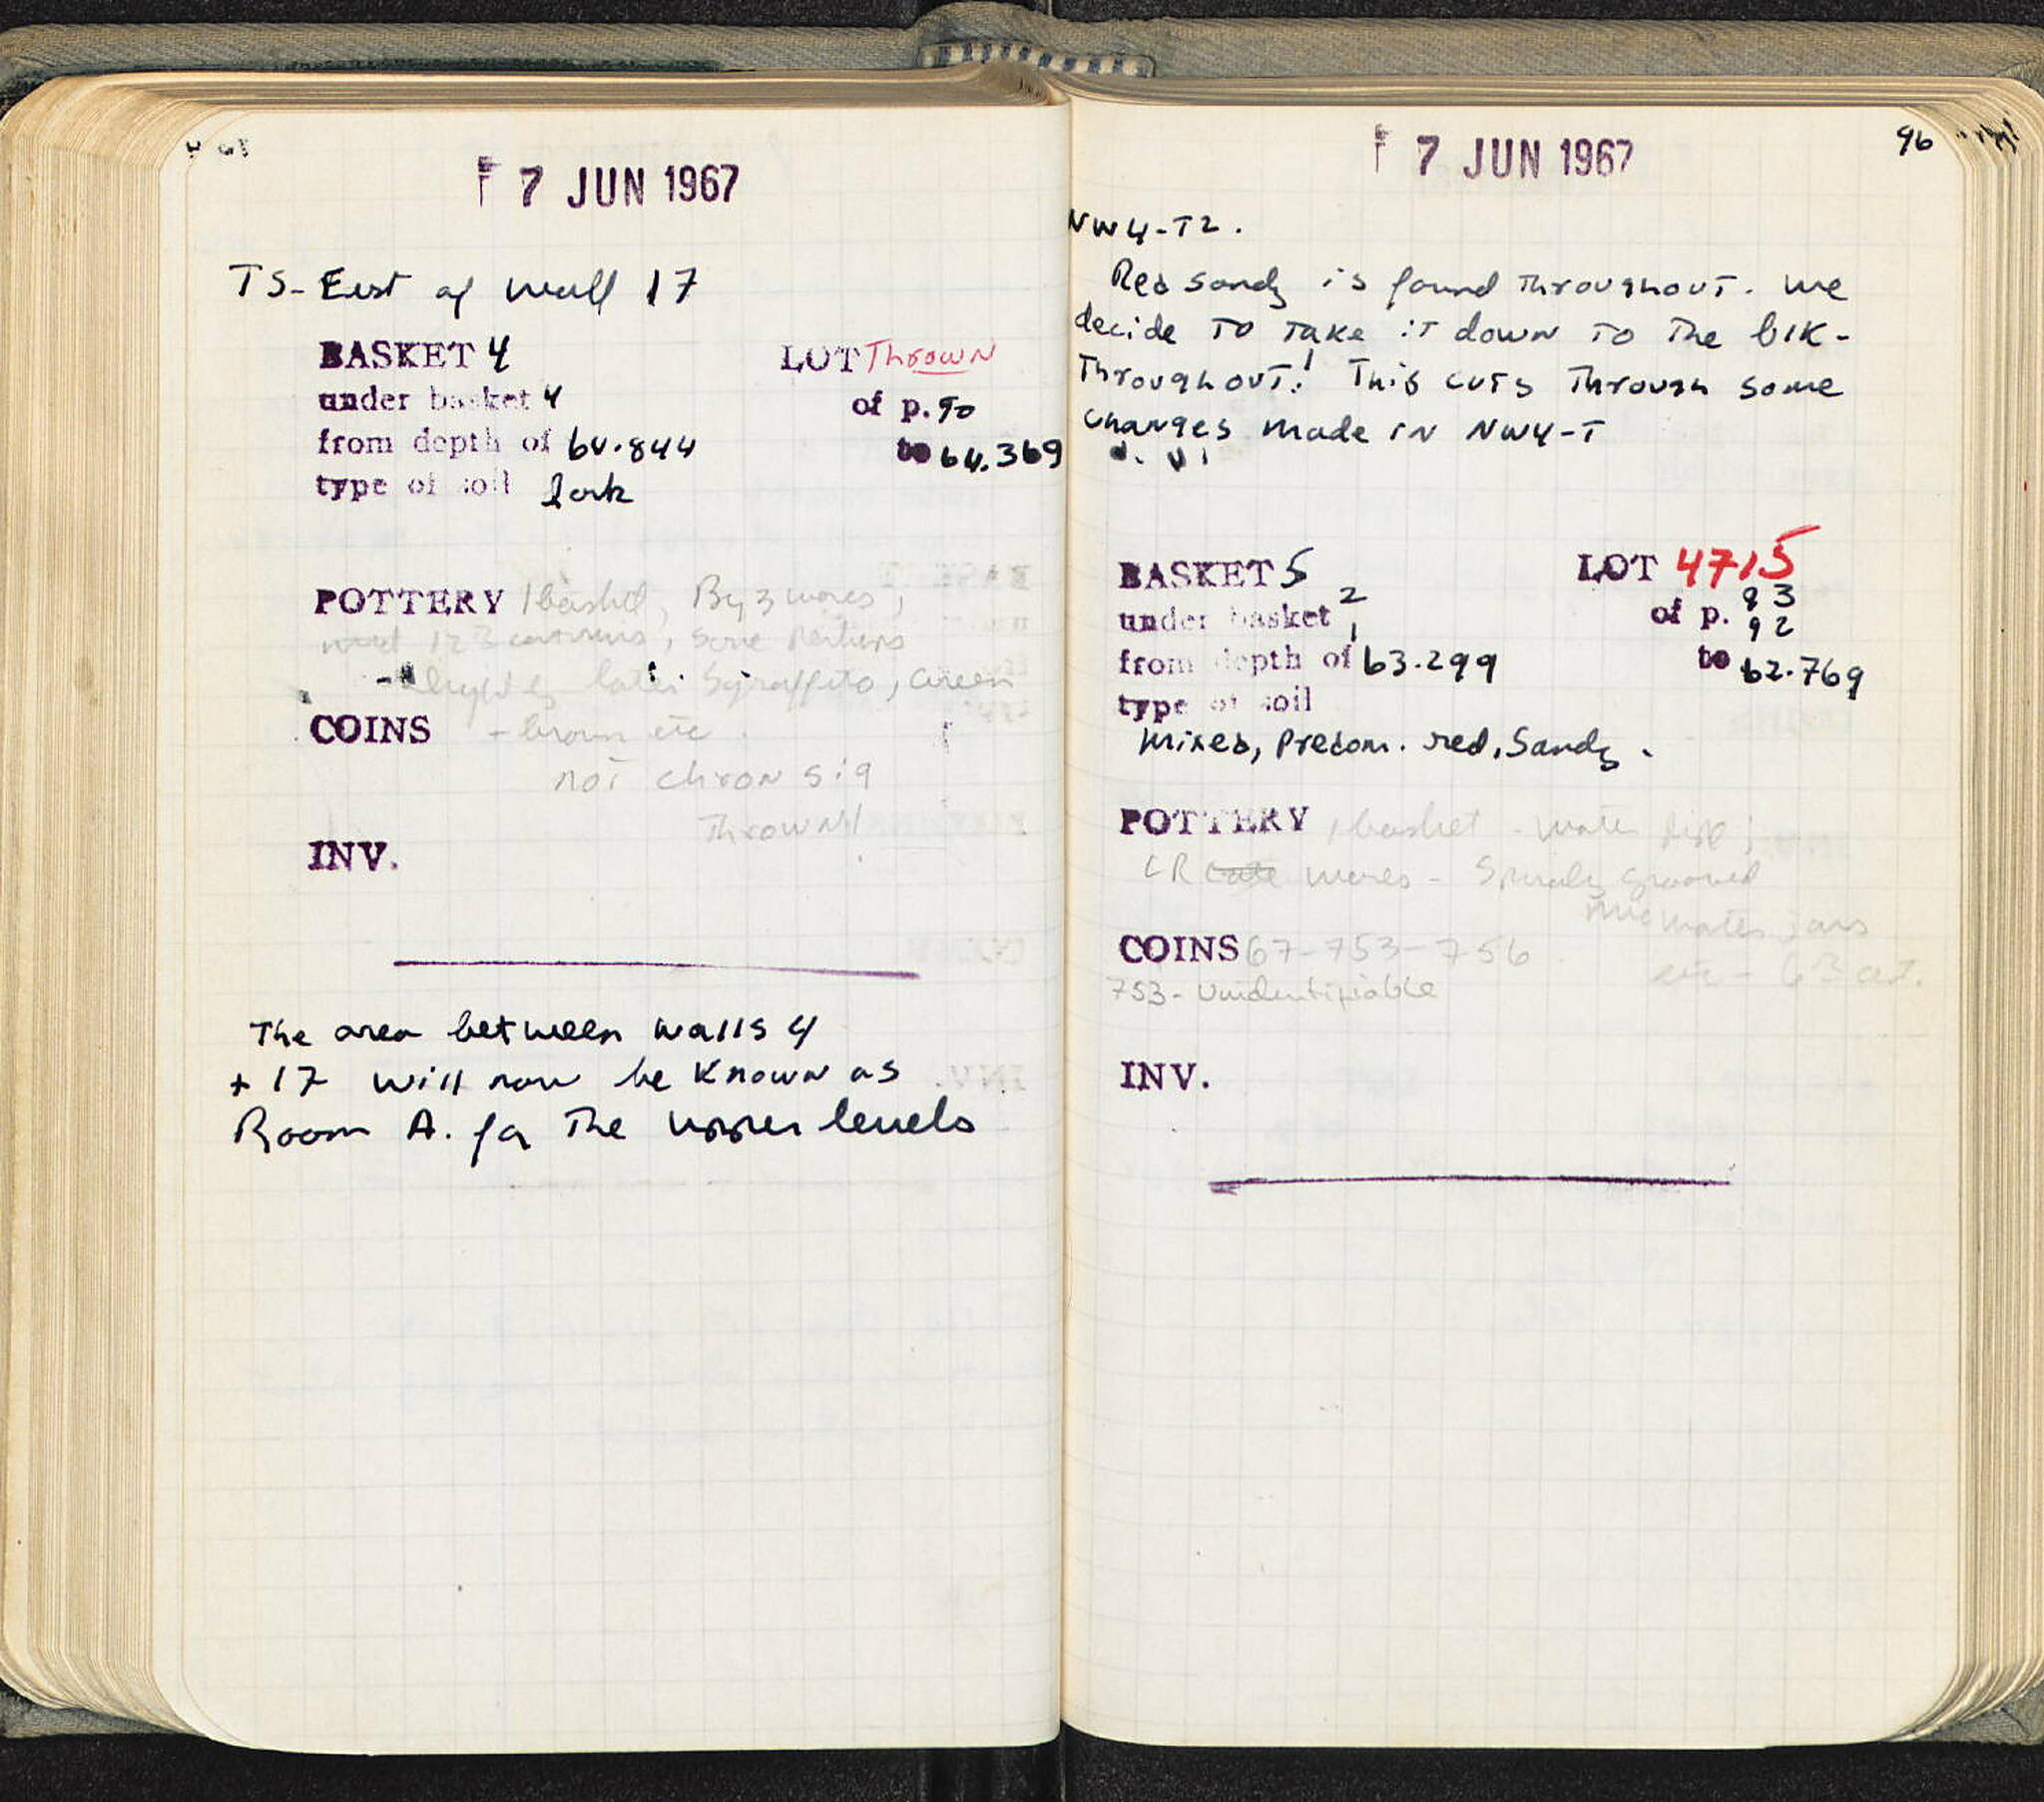 7 JUN 1967
TS-East of Wall 17
BASKET 4 LOT Thrown
under basket 4 of p. 90
from depth of 64.844 to 64.369
type of soil dark
POTTERY 1 basket, Byz wares,
most 12th century, some perhaps
slightly later Sgraffito, Green
COINS - brown etc
not chron sig
Thrown!
INV.
The area between walls 4
+ 17 will now be known as
Room A. for the upper levels
7 JUN 1967
96
NW4-T2.
Red sandy is found throughout. We
decide to take it down to the blk-
throughout! This cuts through some
changes made in NW4-T
BASKET 5 LOT 4715
under basket 2 of p. 93
1 92
from depth of 63.299 to 62.769
type of soil
mixed, predom. red, sandy.
POTTERY 1 basket - water fill;
LR wares - Spirally grooved
water jars
COINS 67-753-756
etc -
753 - Unidentifiable
INV.